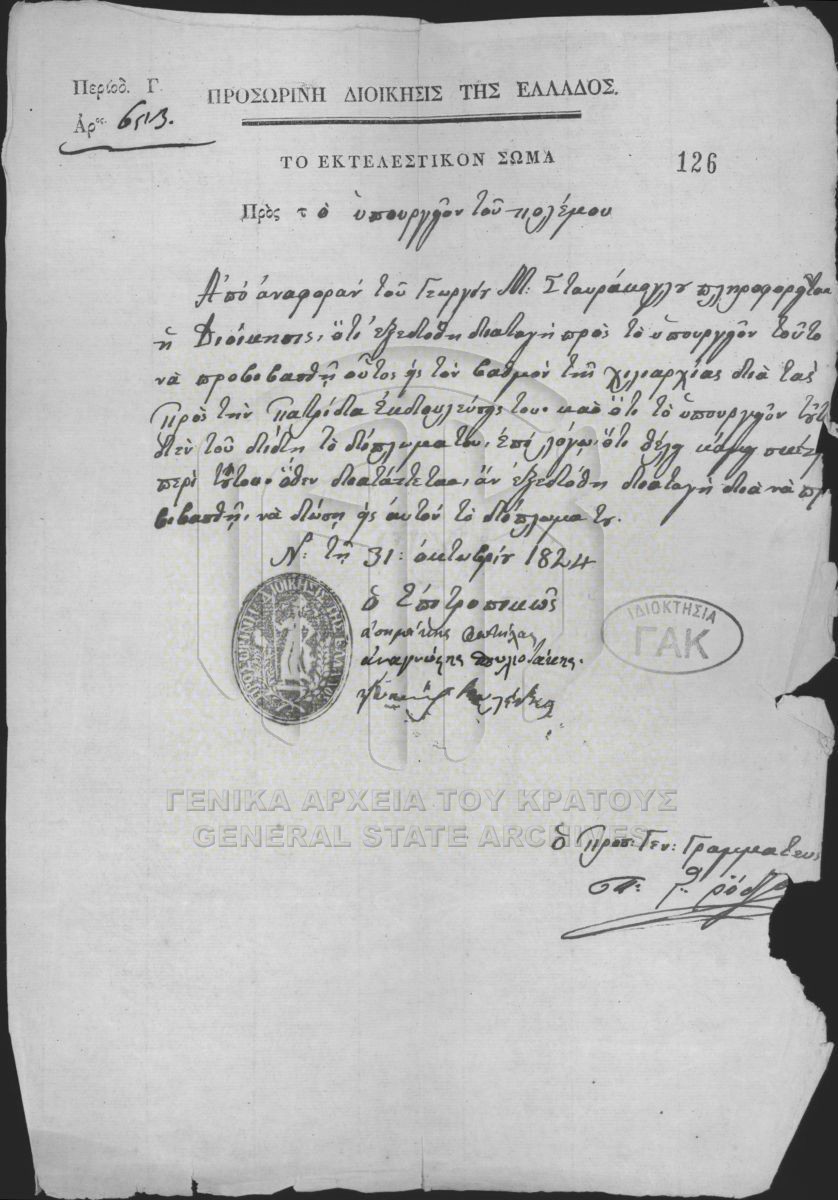 Περίοδ. Γ.
ΠΡΟΣΩΡΙΝΗ ΔΙΟΙΚΗΣΙΣ ΤΗΣ ΕΛΛΑΔΟΣ.
Ἀρος.
ΤΟ ΕΚΤΕΛΕΣΤΙΚΟΝ ΣΩΜΑ
126
Πρὸς τὸ ὑπουργεῖον τοῦ πολέμου
Ἀπὸ ἀναφορὰν τοῦ Γεωργίου Μ: πληροφορεῖται
ἡ Διοίκησις, ὅτι ἐξεδόθη διαταγὴ πρὸς τὸ ὑπουργεῖον τοῦτο
νὰ προβιβασθῇ οὗτος εἰς τὸν βαθμὸν τῆς χιλιαρχίας διὰ τὰς
πρὸς τὴν Πατρίδα ἐκδουλεύσεις του. καὶ ὅτι τὸ ὑπουργεῖον τοῦτο
δὲν τοῦ δίδει τὸ δίπλωμά του, ἐπὶ λόγῳ, ὅτι θέλει κάμει
περὶ τούτου. ὅθεν διατάττεται, ἂν ἐξεδόθη διαταγὴ διὰ νὰ προ
βιβασθῇ, νὰ δώσῃ εἰς αὐτὸν τὸ δίπλωμά του.
Ν: τῇ 31: ὀκτωβρίου 1824
ΠΡΟΣΩΡΙΝΗ ΔΙΟΙΚΗΣΙΣ ΤΗΣ ΕΛΛΑΔΟΣ
ὁ
ἀσημάκης φωτήλας
ἀναγνώστης
ΙΔΙΟΚΤΗΣΙΑ
ΓΑΚ
ΓΕΝΙΚΑ ΑΡΧΕΙΑ ΤΟΥ ΚΡΑΤΟΥΣ
GENERAL STATE ARCHIVES
ὁ προσ: Γεν: Γραμματεὺς
Π: Γ. Ρόδιος